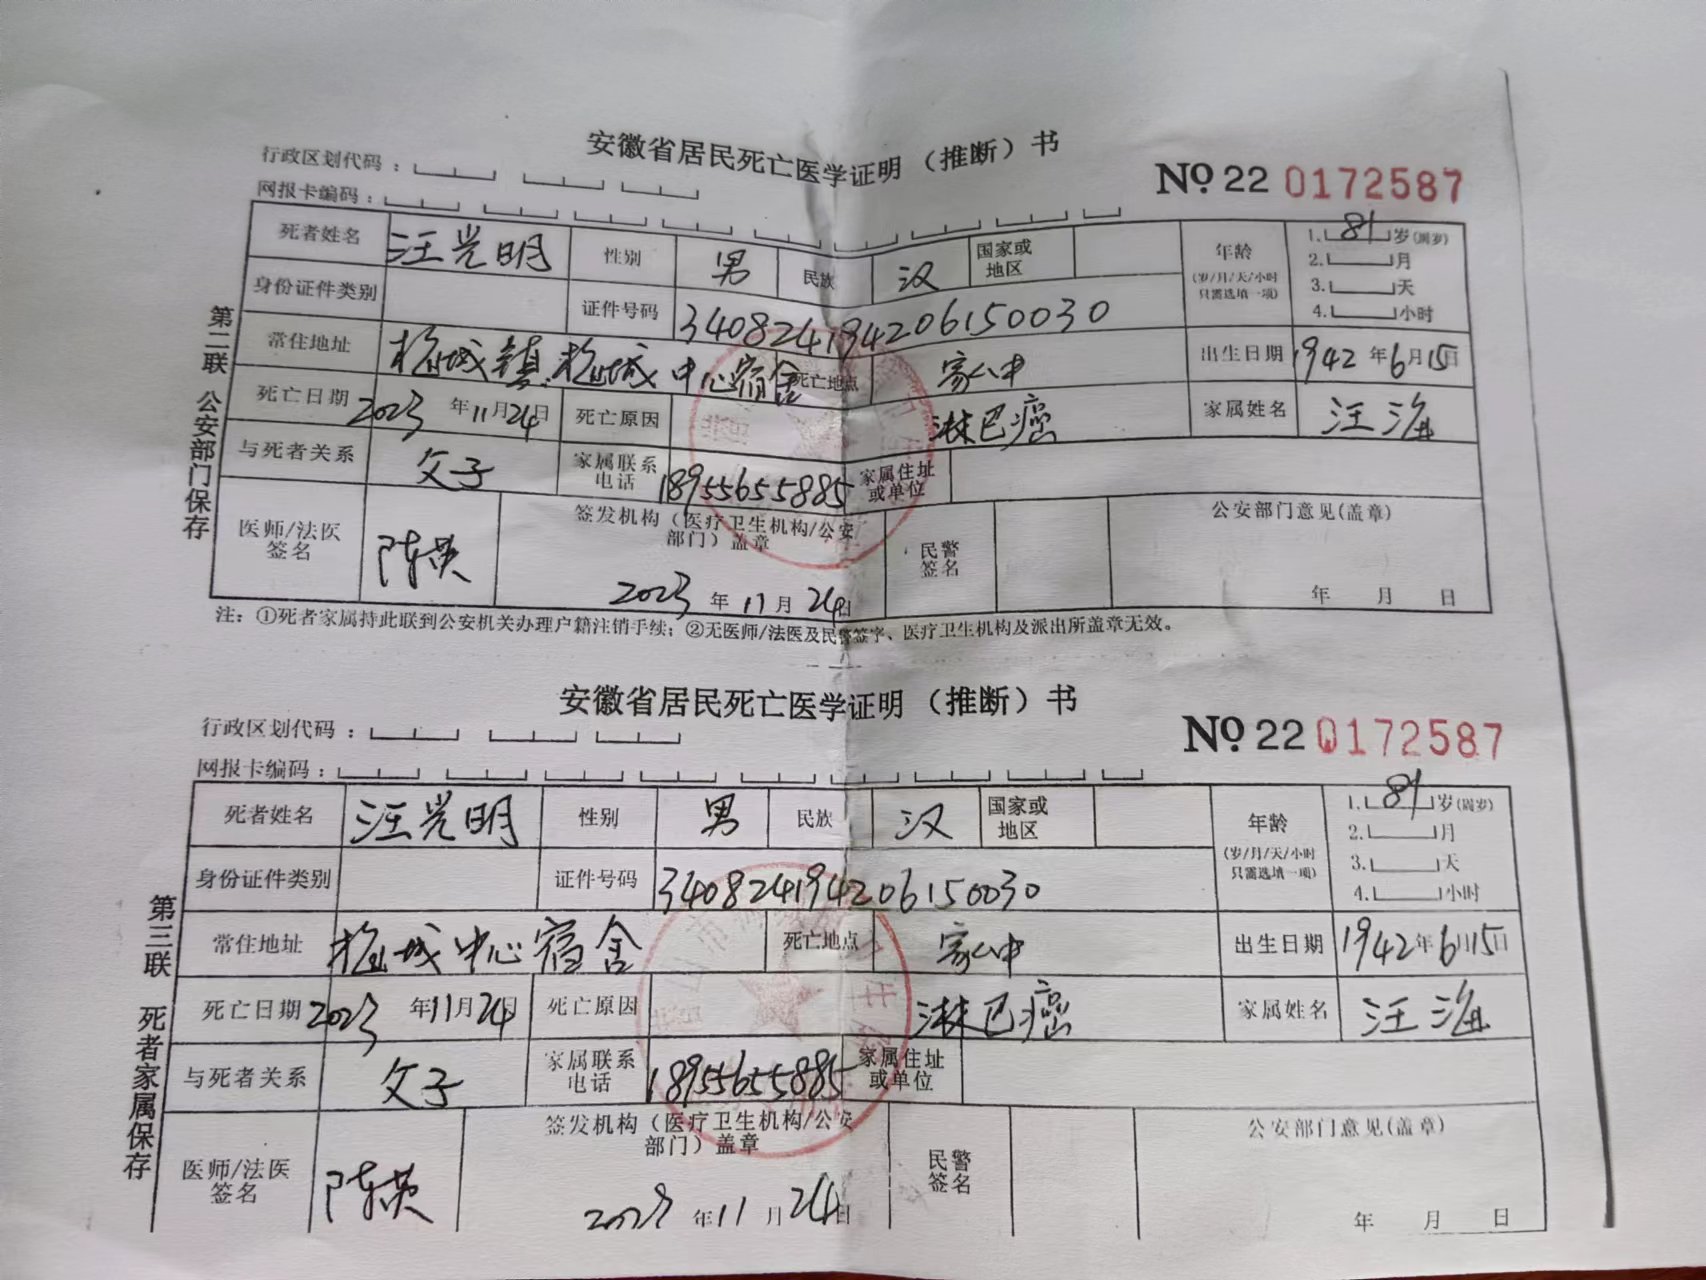 安徽省居民死亡医学证明（推断）书
行政区划代码：
№ 22 0172587
网报卡编码：
死者姓名 汪光明 性别 男 民族 汉 国家或地区 年龄 (岁/月/天/小时只需选填一项) 1.81岁(周岁) 2.月 3.天 4.小时
身份证件类别 证件号码 340824194206150030
常住地址 梅城镇梅城中心宿舍 死亡地点 家中 出生日期 1942年6月15日
死亡日期 2023年11月24日 死亡原因 淋巴癌 家属姓名 汪海
与死者关系 父子 家属联系电话 18955655885 家属住址或单位
医师/法医签名 陈英 签发机构（医疗卫生机构/公安部门）盖章 2023年11月24日 民警签名 公安部门意见(盖章) 年 月 日
第二联 公安部门保存
注：①死者家属持此联到公安机关办理户籍注销手续；②无医师/法医及民警签字、医疗卫生机构及派出所盖章无效。
安徽省居民死亡医学证明（推断）书
行政区划代码：
№ 22 0172587
网报卡编码：
死者姓名 汪光明 性别 男 民族 汉 国家或地区 年龄 (岁/月/天/小时只需选填一项) 1.81岁(周岁) 2.月 3.天 4.小时
身份证件类别 证件号码 340824194206150030
常住地址 梅城中心宿舍 死亡地点 家中 出生日期 1942年6月15日
死亡日期 2023年11月24日 死亡原因 淋巴癌 家属姓名 汪海
与死者关系 父子 家属联系电话 18955655885 家属住址或单位
医师/法医签名 陈英 签发机构（医疗卫生机构/公安部门）盖章 2023年11月24日 民警签名 公安部门意见(盖章) 年 月 日
第三联 死者家属保存